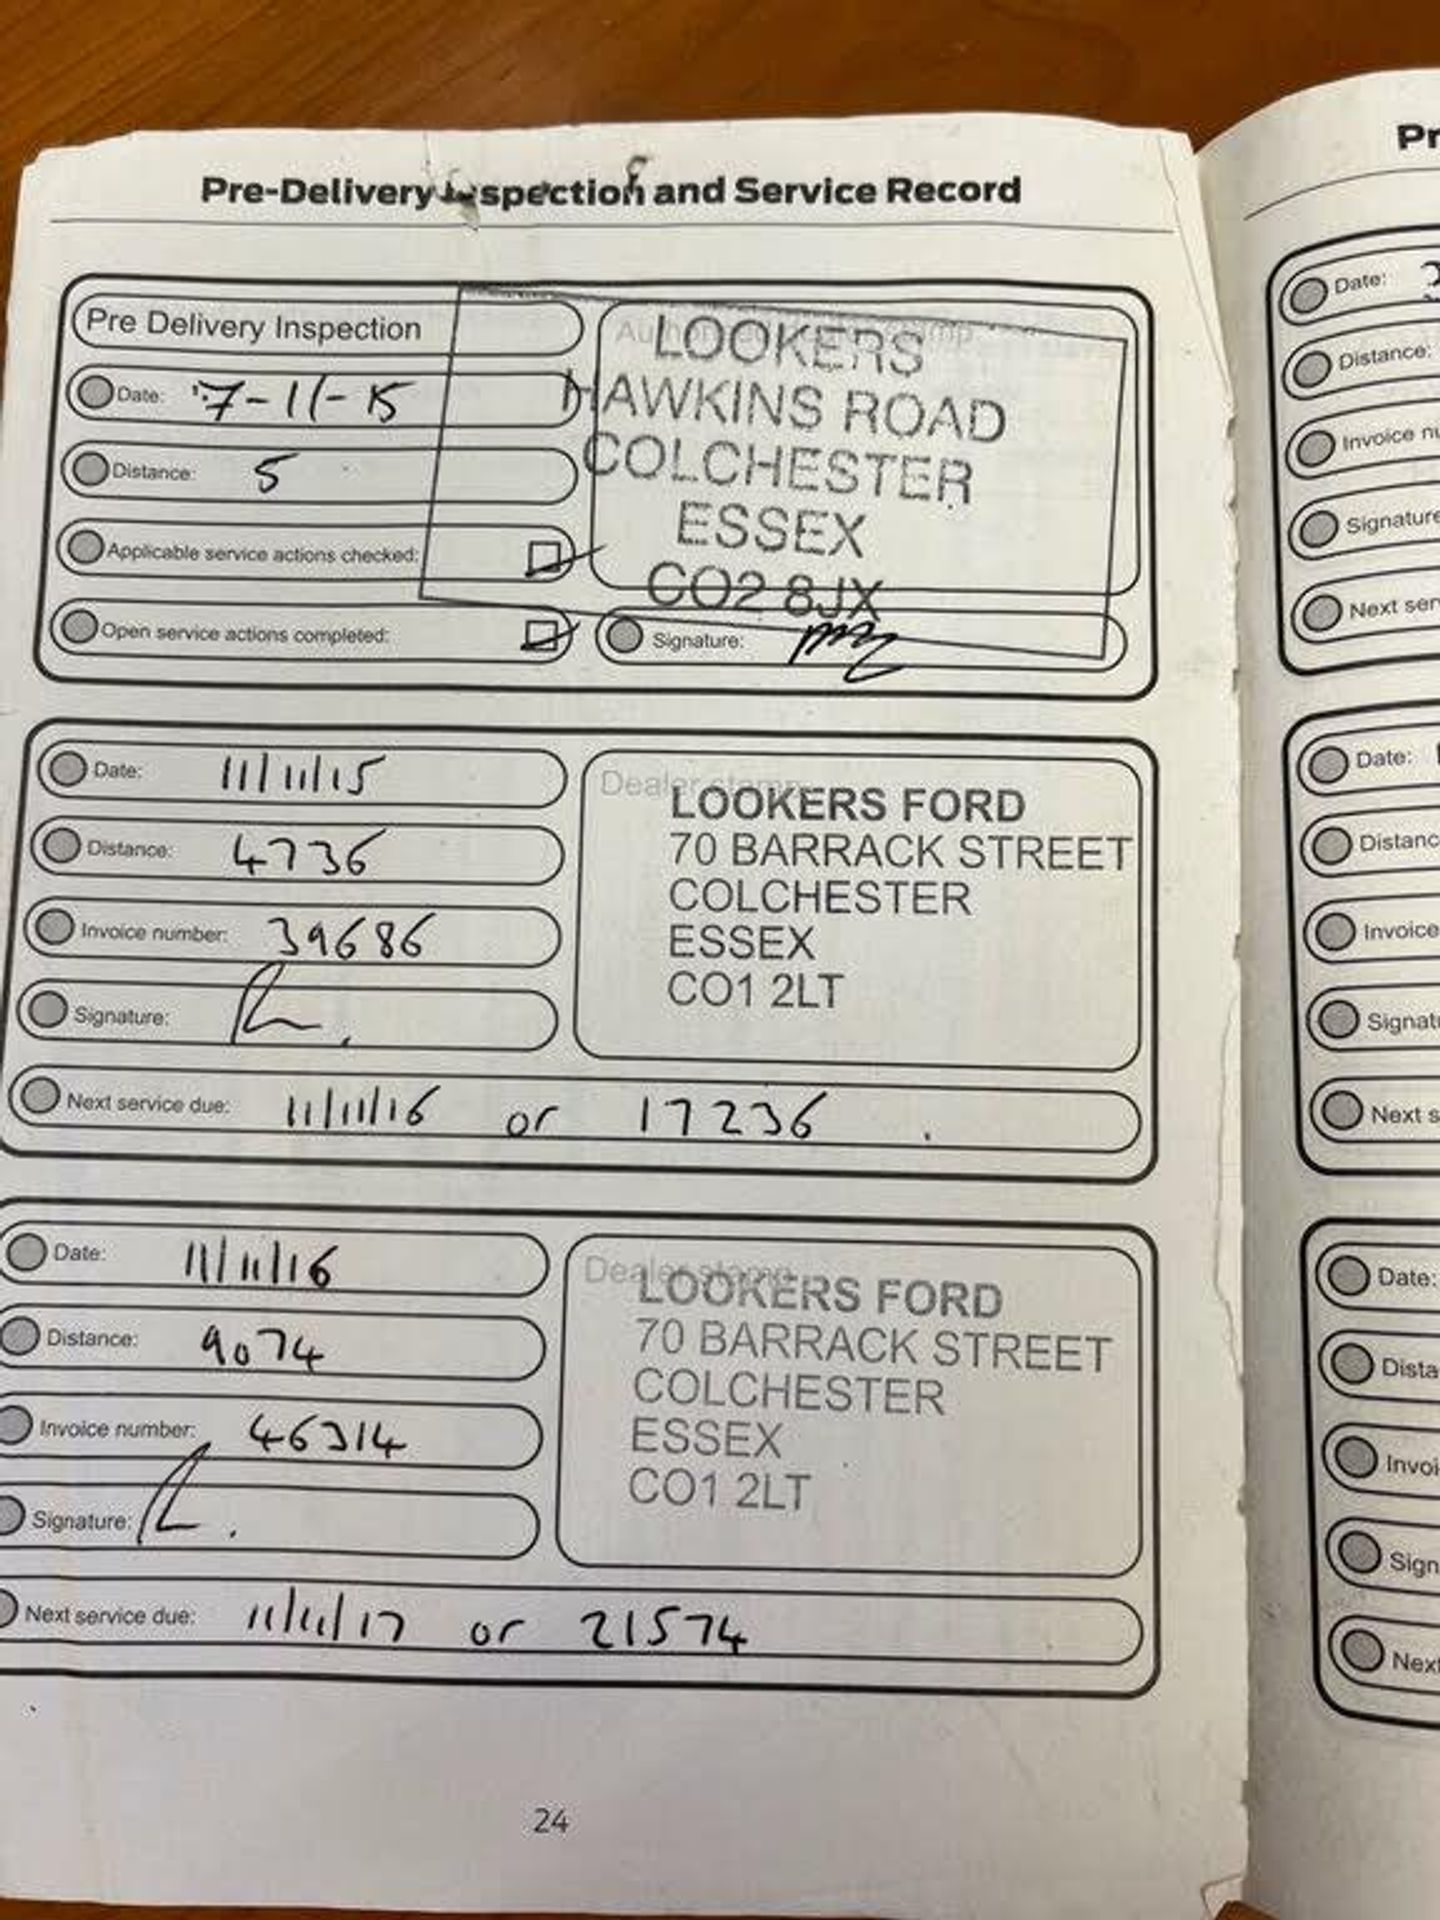 Pre-Delivery Inspection and Service Record
Pre Delivery Inspection
Date: 7-11-15
Distance: 5
Applicable service actions checked:
Open service actions completed:
stamp
LOOKERS
HAWKINS ROAD
COLCHESTER
ESSEX
CO2 8JX
Signature:
Date: 11/11/15
Distance: 4736
Invoice number: 39686
Signature:
Next service due: 11/11/16 or 17236
Dealer stamp
LOOKERS FORD
70 BARRACK STREET
COLCHESTER
ESSEX
CO1 2LT
Date: 11/11/16
Distance: 9074
Invoice number: 46314
Signature:
Next service due: 11/11/17 or 21574
Dealer stamp
LOOKERS FORD
70 BARRACK STREET
COLCHESTER
ESSEX
CO1 2LT
24
Pr
Date:
Distance:
Invoice nu
Signature
Next ser
Date:
Distanc
Invoice
Signat
Next s
Date:
Dista
Invoi
Sign
Next